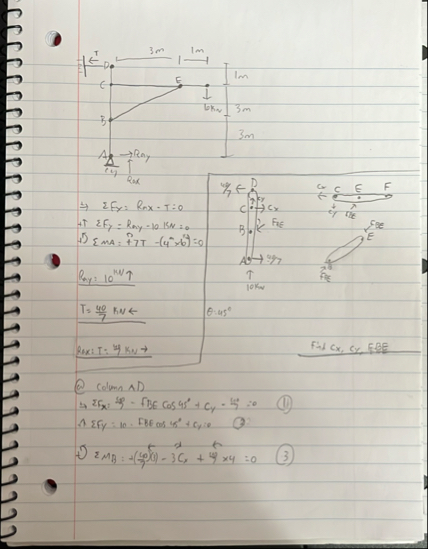 T D 3m 1m
1m
C E
10KN 3m
B
3m
A → RAy
RAx
→ ΣFx = RAx - T = 0
+↑ ΣFy = RAy - 10 KN = 0
ΣMA = +7T - (4*10) = 0
RAy = 10 KN ↑
T = 40/7 KN ←
RAx = T = 40/7 KN →
40/7 D
Cy
C → Cx
B FBE
A → 40/7
10KN
θ = 45°
Cx C E F
Cy FBE
FBE
E
FBE
Find Cx, Cy, FBE
@ Column AD
→ ΣFx = 40/7 - FBE Cos 45° + Cx - 40/7 = 0 (1)
↑ ΣFy = 10 - FBE Cos 45° + Cy = 0 (2)
ΣMB = +(40/7)(3) - 3Cx + 40/7 x4 = 0 (3)